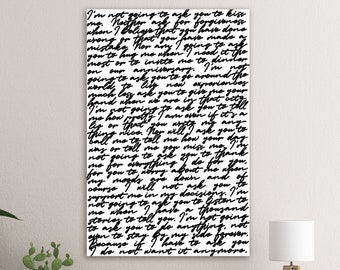 I'm not going to ask you to kiss
me. Neither ask for forgiveness
when I believe that you have done
wrong or that you have made a
mistake. Nor am I going to ask
you to hug me when I need it the
most or to invite me to dinner
on our anniversary. I'm not
going to ask you to go around the
world to live new experiences
much less ask you to give me your
hand when we are in that city.
I'm not going to ask you to tell
me how pretty I am even if it's a
lie that you write me any-
thing nice. Nor will I ask you to
call me to tell me how your day
was or tell me you miss me. I'm
not going to ask you to thank
me for everything I do for you
for you to worry about me when
my moods are down and of
course I will not ask you to
support me in my decisions. I'm
not going to ask you to listen to
me when I have a thousand
stories to tell you. I'm not going
to ask you to do anything, not
even to stay by my side forever.
Because if I have to ask you
I do not want it anymore.